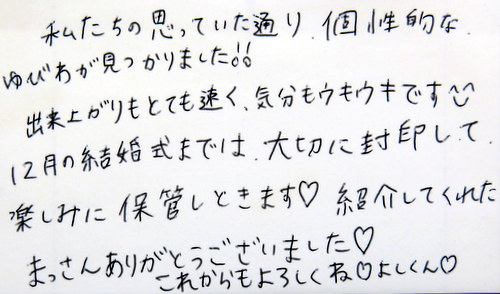 私たちの思っていた通り、個性的な
ゆびわが見つかりました!!
出来上がりもとても速く、気分もウキウキです
12月の結婚式までは、大切に封印して
楽しみに保管しときます♡ 紹介してくれた
まっさんありがとうございました♡
これからもよろしくね♡よしくん♡